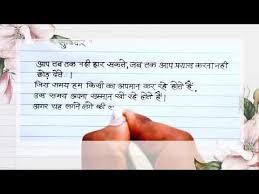 सुविचार
आप तब तक नही हार सकते, जब तक आप प्रयास करना नही
छोड़ देते ।
जिस समय हम किसी का अपमान कर रहे होते हैं,
उस समय अपना सम्मान खो रहे होते हैं।
अगर यह लगने लगे की